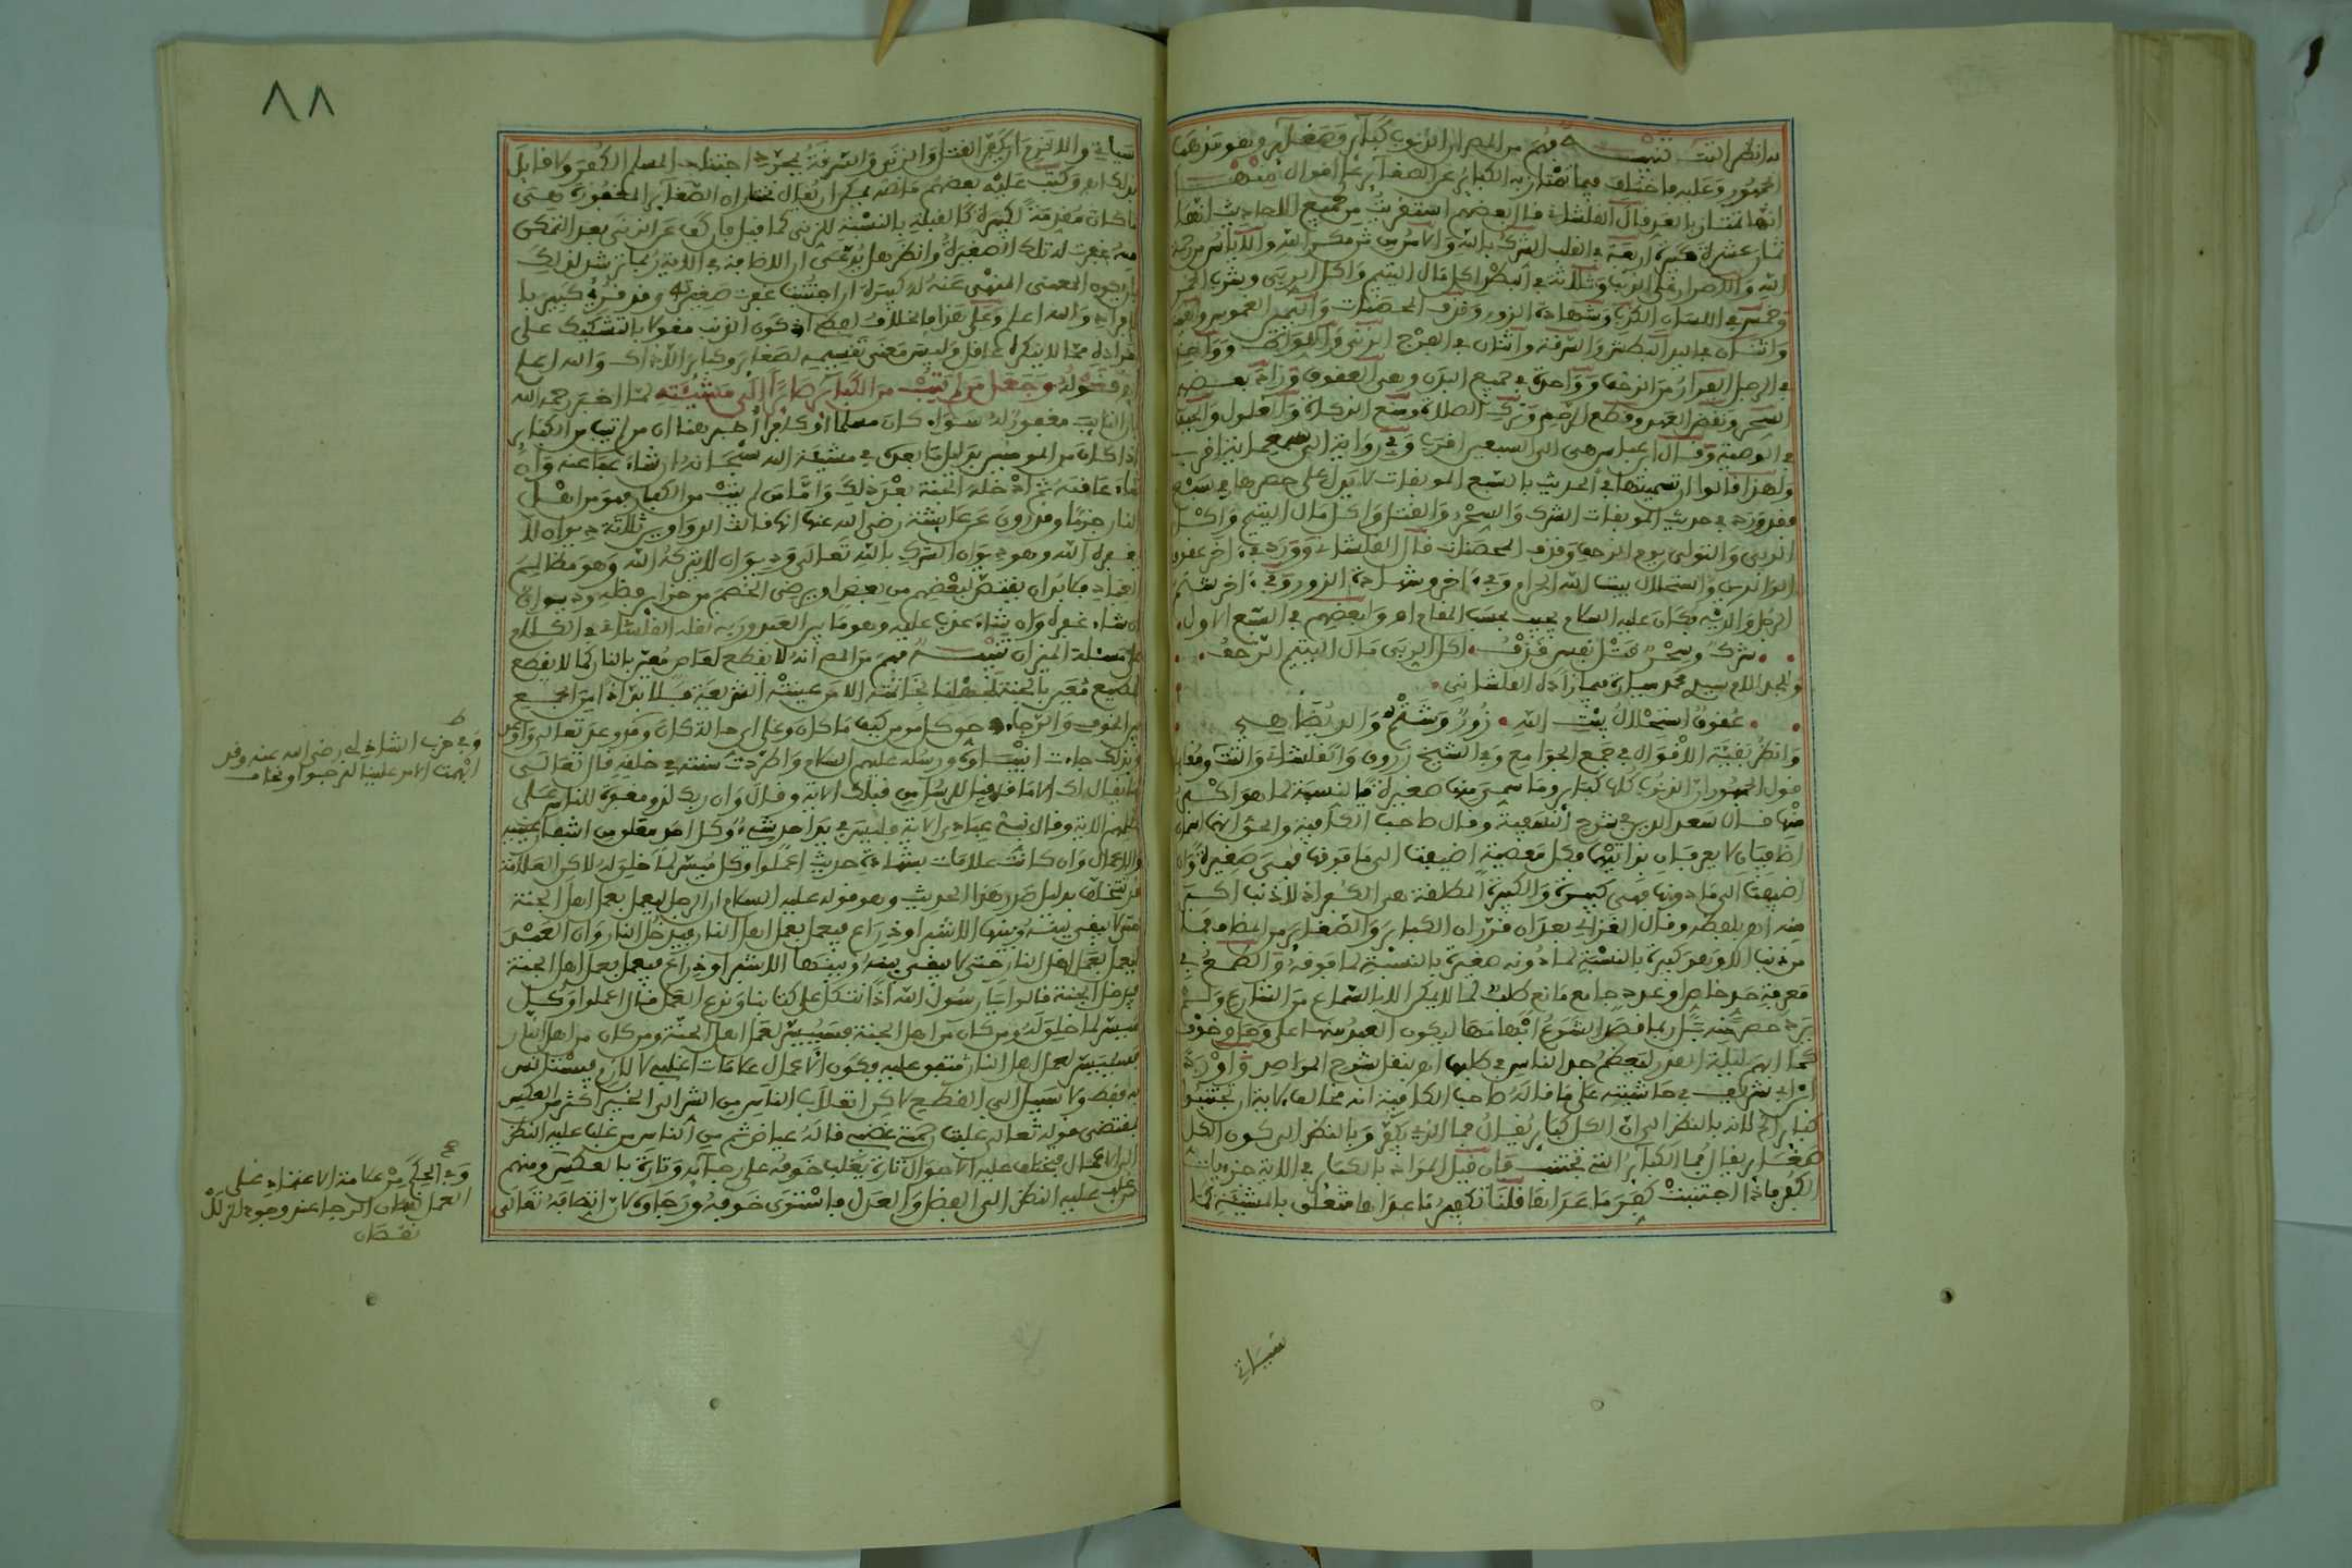 به انظر التت تنبيه فهم من المص ان الذنوب كبائر وصغائر وهو مذهب
الجمهور وعليه فاختلف فيما تمتاز به الكبائر عن الصغائر على اقوال منها
انها تمتاز بالعد قال الفلشاني قال بعضهم استقريت من جميع الاحاديث انها
ثمان عشرة كبيرة اربعة في القلب الشرك بالله والامن من مكر الله والاياس من رحمة
الله والاصرار على الذنب وثلاثة في البطن اكل مال اليتيم واكل الربى وشرب الخمر
وخمس في اللسان الكذب وشهادة الزور وقذف المحصنات واليمين الغموس
واثنان في اليد البطش والسرقة واثنان في الفرج الزنى واللواط وواحد
في الرجل الفرار من الزحف وواحدة في جميع البدن وهي العقوق وزاد بعضهم
السحر ونقض العهد وقطع الرحم وترك الصلاة ومنع الزكاة والغلول
في الوصية وقال ابن عباس هي الى السبعين اقرب وفي رواية الى سبعمائة اقرب
ولهذا قالوا ان تسميتها في الحديث بالسبع الموبقات لا يدل على حصرها في سبع
فقد ورد في حديث الموبقات الشرك والسحر والقتل واكل مال اليتيم واكل
الربى والتولي يوم الزحف وقذف المحصنات قال الفلشاني وورد في اخر عقوق
الوالدين واستحلال بيت الله الحرام وفي اخر وشهادة الزور وفي اخر شتم
الرجل والديه فكان عليه السلام يجيب بحسب المقام اه ولبعضهم في السبع الاول
شرك وسحر قتل نفس قذف اكل الربى مال اليتيم الزحف
ولجد الام سيدي محمد ميارة فيما زاده الفلشاني
عقوق استحلال بيت الله زور وشتم والديه
وانظر بقية الاقوال في جمع الجوامع وفي الشيخ زروق والفلشاني والتت
قول الجمهور ان الذنوب كلها كبائر وما سمي منها صغيرة فبالنسبة لما هو اكبر
منها قال سعد الدين في شرح النسفية وقال صاحب الكفاية والحق انهما اسمان
اضافيان لا يعرفان بذاتهما فكل معصية اضيفت الى ما فوقها فهي صغيرة وان
اضيفت الى ما دونها فهي كبيرة والكبيرة المطلقة هي الكفر اذ لا ذنب اكبر
منه اه بلفظه وقال الغزالي بعد ان قرر ان الكبائر والصغائر من المضاف فما
من ذنب الا وهو كبيرة بالنسبة لما دونه صغيرة بالنسبة لما فوقه والطمع في
معرفة حد خاص او عدد جامع مانع طلب لما لا يمكن الا بالسماع من الشارع ولم
يرد حصر منه بل ربما قصد الشرع ابهامها ليكون العبد منها على وجل وخوف
كما ابهم ليلة القدر ليعظم جد الناس في طلبها اه بنقل شرح المراصد واورد
ابن ابي شريف في حاشيته على ما قاله صاحب الكفاية انه مخالف لاية ان تجتنبوا
كبائر الخ لانه بالنظر الى ان الكل كبائر يقال فما الذي يكفر وبالنظر الى كون الكل
صغائر يقال فما الكبائر التي تجتنب فان قيل المراد بالكبائر في الاية جزئيات
الكفر فاذا اجتنبت كفر ما عداها قلنا تكفير ما عداها متعلق بالمشيئة كما
سياتي
٨٨
سياتي والا لزم ان يكفر القتل والزنى والسرقة بمجرد اجتناب المسلم الكفر ولا قائل
بذلك اه وكتب عليه بعضهم ما نصه يمكن ان يقال نختار ان الصغائر المغفورة هي
ما كان مقدمة لكبيرة كالقبلة بالنسبة للزنى كما قيل فان كف عن الزنى بعد التمكن
منه غفرت له تلك الصغيرة وانظر هل يدعى ان الاضافة في الاية ترشد لذلك
والله اعلم وعلى هذا فالخلاف لفظي اذ كون الذنب مقولا بالتشكيك على
افراده مما لا ينكره عاقل وليس معنى تقسيمه لصغائر وكبائر الا ذاك والله اعلم
قوله وجعل من لم يتب من الكبائر صائرا الى مشيئته لما اخبر رحمه الله
بان التائب مغفور له سواء كان مسلما او كافرا اخبر هنا ان من لم يتب من الكبائر
اذا كان من المومنين بدليل ما بعده في مشيئة الله سبحانه ان شاء عفا عنه وان
شاء عاقبه ثم ادخله الجنة بعد ذلك واما من لم يتب من الكفار فهو من اهل
النار جزما وقد روي عن عائشة رضي الله عنها انها قالت الدواوين ثلاثة ديوان لا
يغفره الله وهو ديوان الشرك بالله تعالى وديوان لا يتركه الله وهو مظالم
العباد فلا بد ان يقتص لبعضهم من بعض او يرضي الخصم من خزائن فضله وديوان
ان شاء غفره وان شاء عذب عليه وهو ما بين العبد وربه نقله الفلشاني في الكلام
على مسئلة الميزان تنبيه فهم من المص انه لا يقطع لعاص معين بالنار كما لا يقطع
لمطيع معين بالجنة
بين الخوف والرجاء هو كل مومن كيف ما كان وعلى اي حالة كان
وبذلك جاءت انبياؤه ورسله عليهم السلام واطردت سنته في خلقه قال تعالى
ما يقال لك الا ما قد قيل للرسل من قبلك الاية وقال وان ربك لذو مغفرة للناس على
ظلمهم الاية وقال نبئ عبادي الاية
والاعمال وان كانت علامات بشهادة حديث اعملوا فكل ميسر لما خلق له لاكن العلامة
قد تتخلف بدليل صدر هذا الحديث وهو قوله عليه السلام ان الرجل ليعمل بعمل اهل الجنة
حتى لا يبقى بينه وبينها الا شبر او ذراع فيعمل بعمل اهل النار فيدخل النار وان العبد
ليعمل بعمل اهل النار حتى لا يبقى بينه وبينها الا شبر او ذراع فيعمل بعمل اهل الجنة
فيدخل الجنة قالوا يا رسول الله اذا نتكل على كتابنا وندع العمل فقال اعملوا فكل
ميسر لما خلق له ومن كان من اهل الجنة فسييسر لعمل اهل الجنة ومن كان من اهل النار
فسييسر لعمل اهل النار متفق عليه فكون الاعمال علامات اغلبي لا لازم فيستانس
به فقط ولا سبيل الى القطع لاكن انقلاب الناس من الشر الى الخير اكثر من العكس
بمقتضى قوله تعالى غلبت رحمتي غضبي قاله عياض ثم من الناس من غلب عليه النظر
الى الاعمال فتختلف عليه الاحوال تارة يغلب خوفه على رجائه وتارة بالعكس ومنهم
من غلب عليه النظر الى الفضل والعدل فاستوى خوفه ورجاؤه لان اتصافه تعالى
وفي حزب الشاذلي رضي الله عنه وقد
ابهمت الامر علينا لنرجوا ونخاف
وفي الحكم من علامة الاعتماد على
العمل نقصان الرجا عند وجود الزلل
نقصان